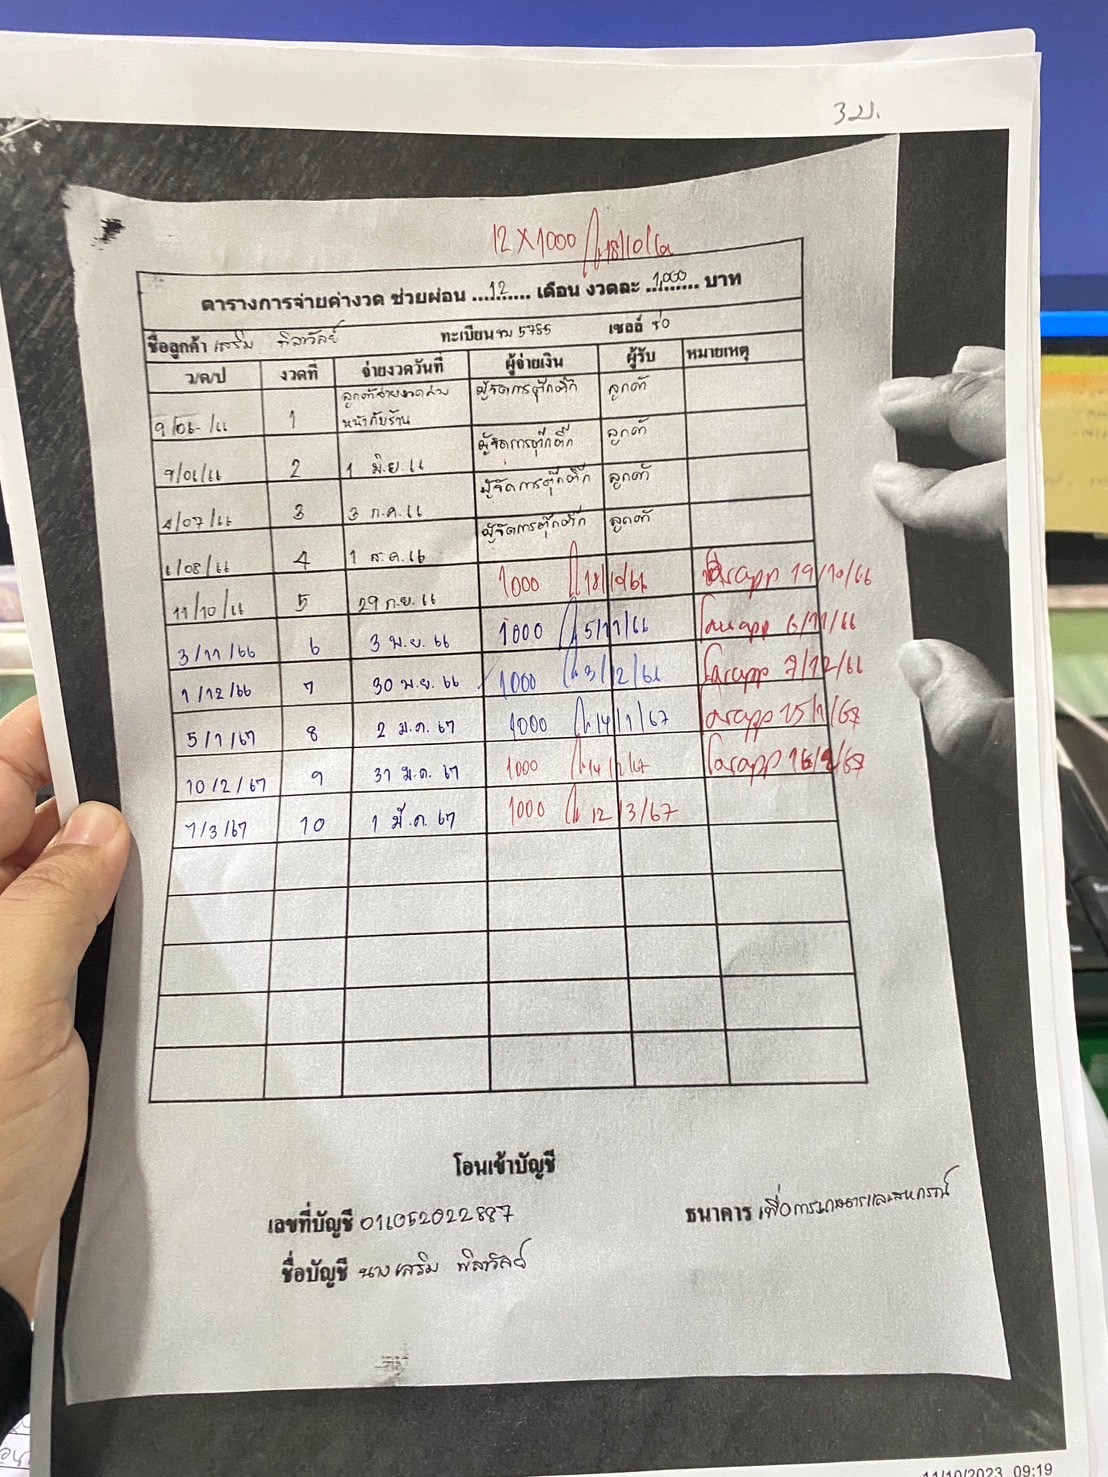 3ม.
12 X 1000 18/10/66
ตารางการจ่ายค่างวด ช่วยผ่อน ...12... เดือน งวดละ ...1,000... บาท
ชื่อลูกค้า เสริม พิลาวัลย์ ทะเบียน 5785 เซลล์
ว/ด/ป งวดที่ จ่ายงวดวันที่ ผู้จ่ายเงิน ผู้รับ หมายเหตุ
9/06/66 1 ลูกค้าจ่ายงวดล่วงหน้ากับร้าน ผู้จัดการตุ๊กติ๊ก ลูกค้า
9/06/66 2 1 มิ.ย. 66 ผู้จัดการตุ๊กติ๊ก ลูกค้า
4/07/66 3 3 ก.ค. 66 ผู้จัดการตุ๊กติ๊ก ลูกค้า
1/08/66 4 1 ส.ค. 66 ผู้จัดการตุ๊กติ๊ก ลูกค้า
11/10/66 5 29 ก.ย. 66 1000 18/10/66 19/10/66
3/11/66 6 3 พ.ย. 66 1000 5/11/66 6/11/66
1/12/66 7 30 พ.ย. 66 1000 3/12/66 7/12/66
5/1/67 8 2 ม.ค. 67 1000 14/1/67 15/1/67
10/2/67 9 31 ม.ค. 67 1000 14/2/67 16/2/67
7/3/67 10 1 มี.ค. 67 1000 12/3/67
โอนเข้าบัญชี
เลขที่บัญชี 011052022887 ธนาคาร เพื่อการเกษตรและสหกรณ์
ชื่อบัญชี นางเสริม พิลาวัลย์
11/10/2023 09:19